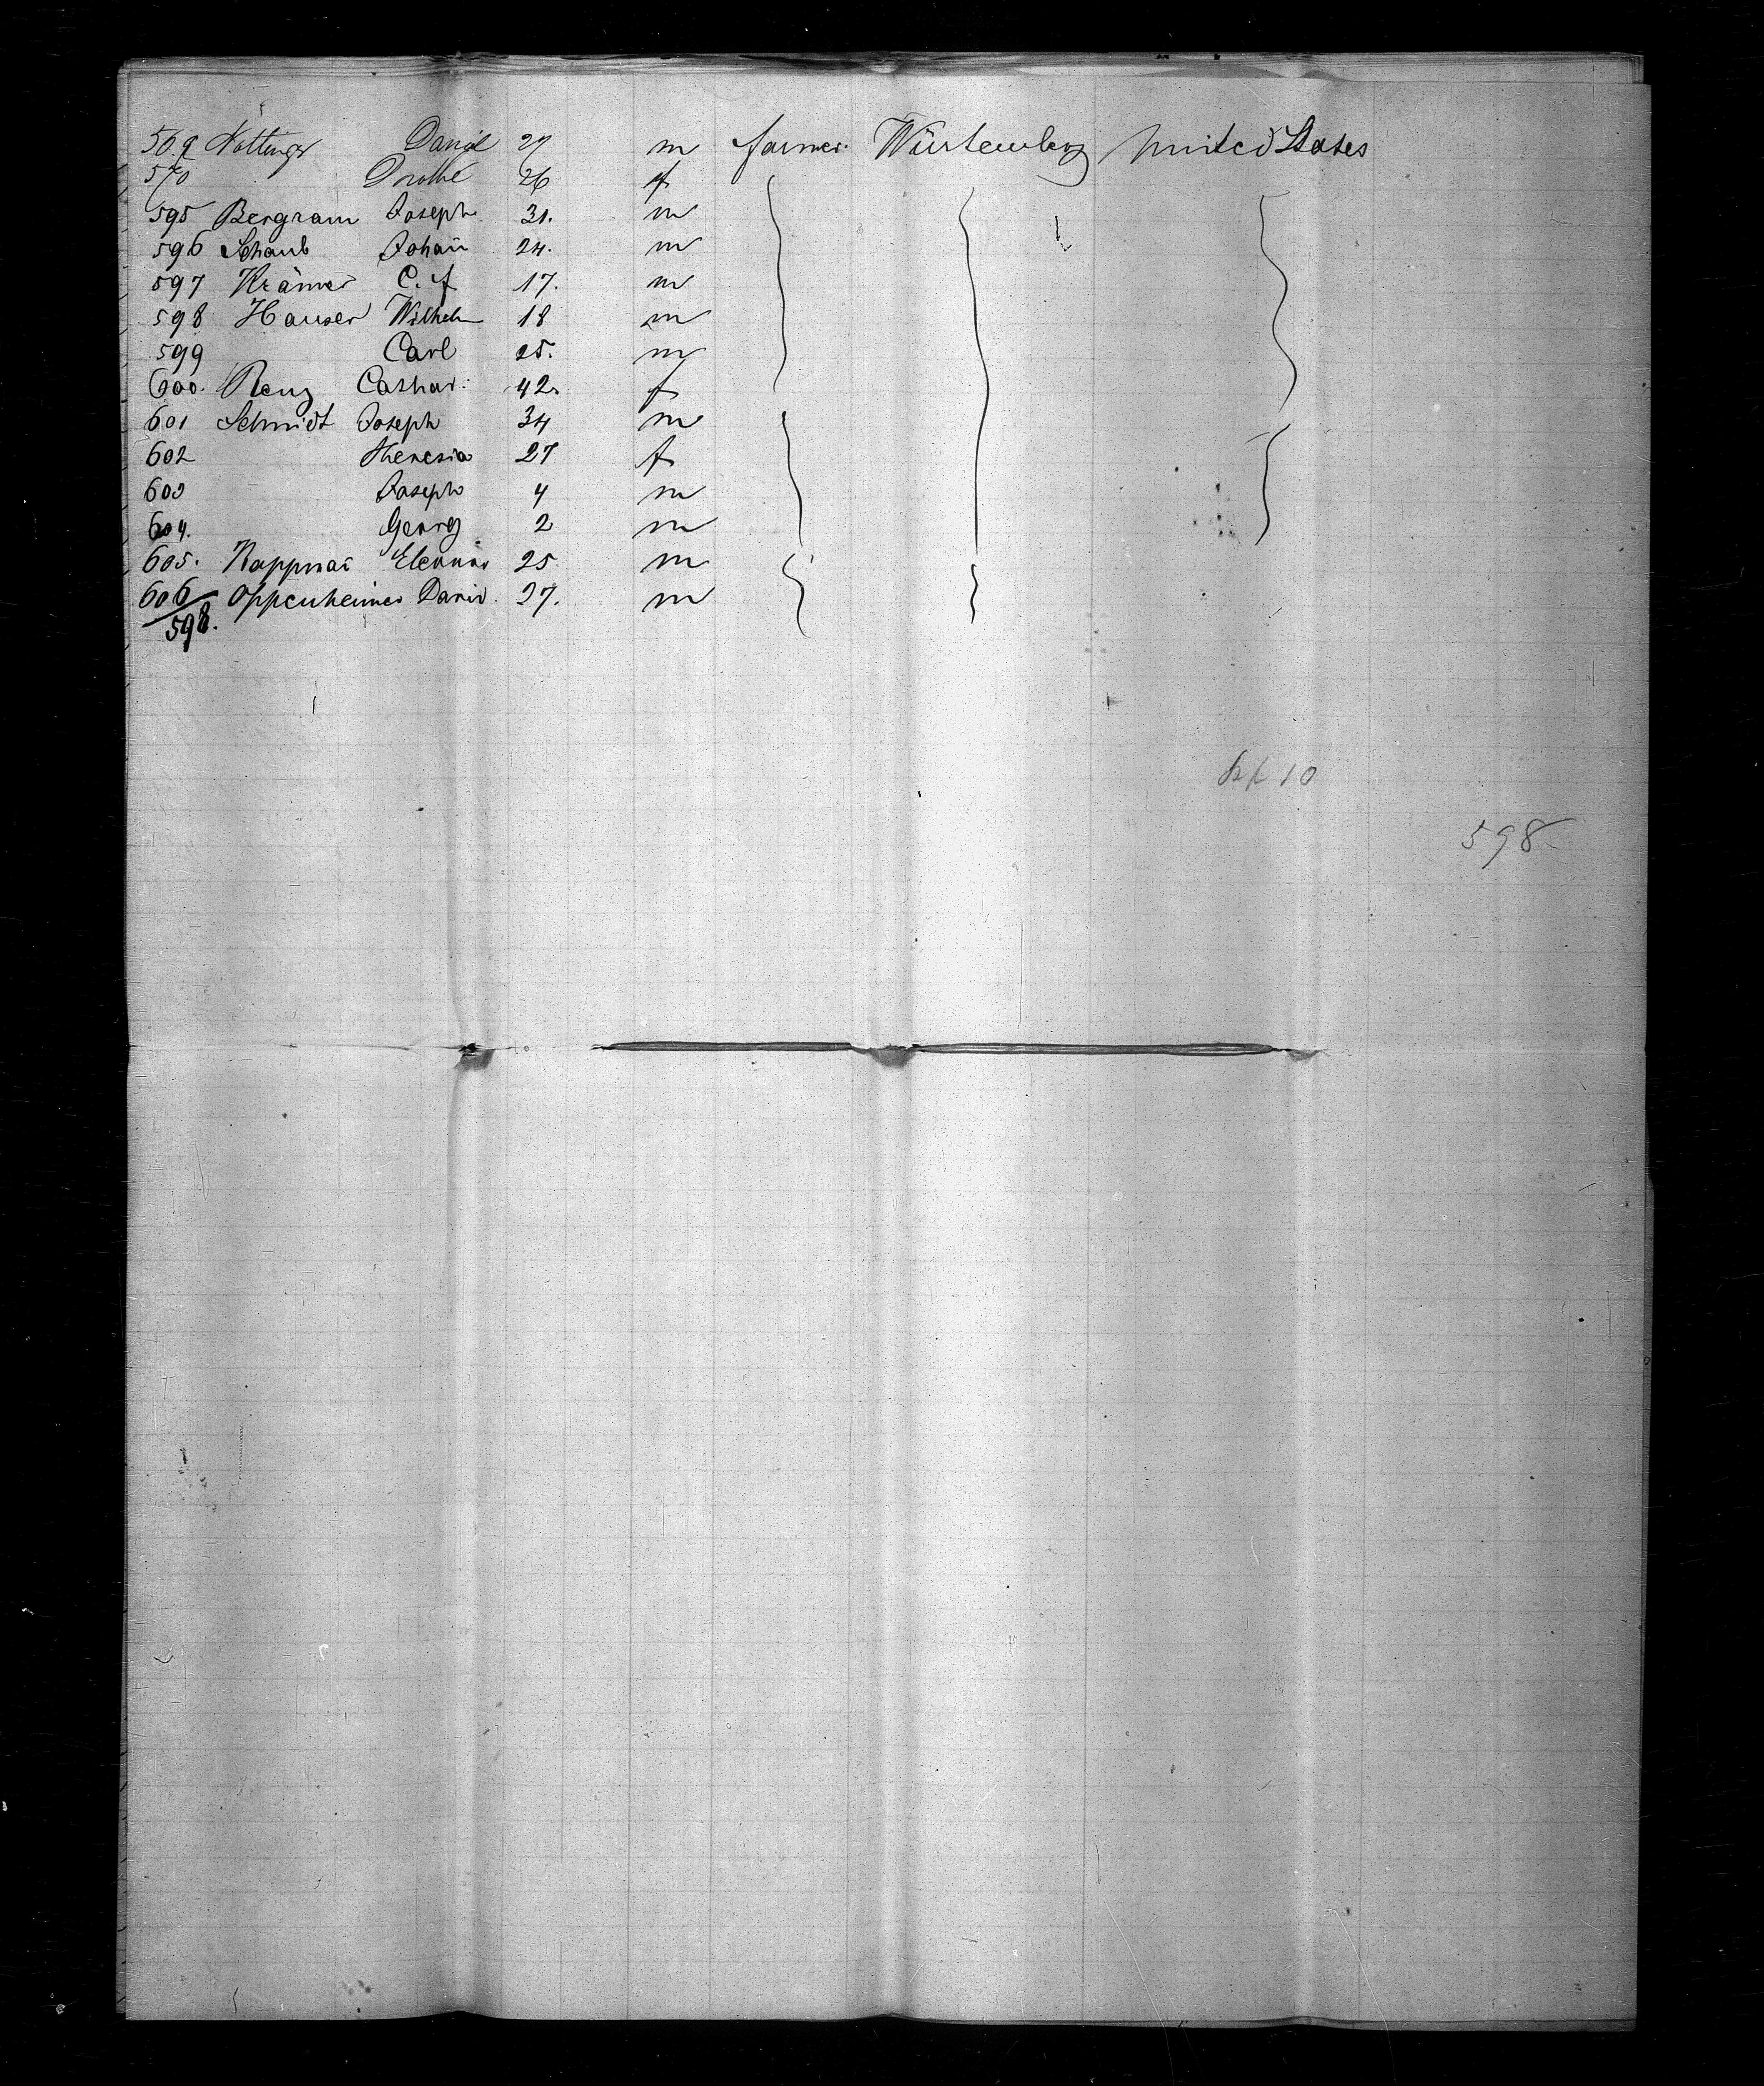 569 Nottinger David 29 m farmer Würtemberg United States
570 Dorothe 26 f
595 Bergram Joseph 31. m
596 Schaub Johan̄ 24. m
597 Krämer C. f 17. m
598 Hauser Wilhelm 18 m
599 Carl 25. m
600. Renz Cathar: 42. f
601 Schmidt Joseph 34 m
602 Theresia 27 f
603 Joseph 4 m
604. Georg 2 m
605. 25 m
606 Oppenheimer David. 27. m
598.
10
598